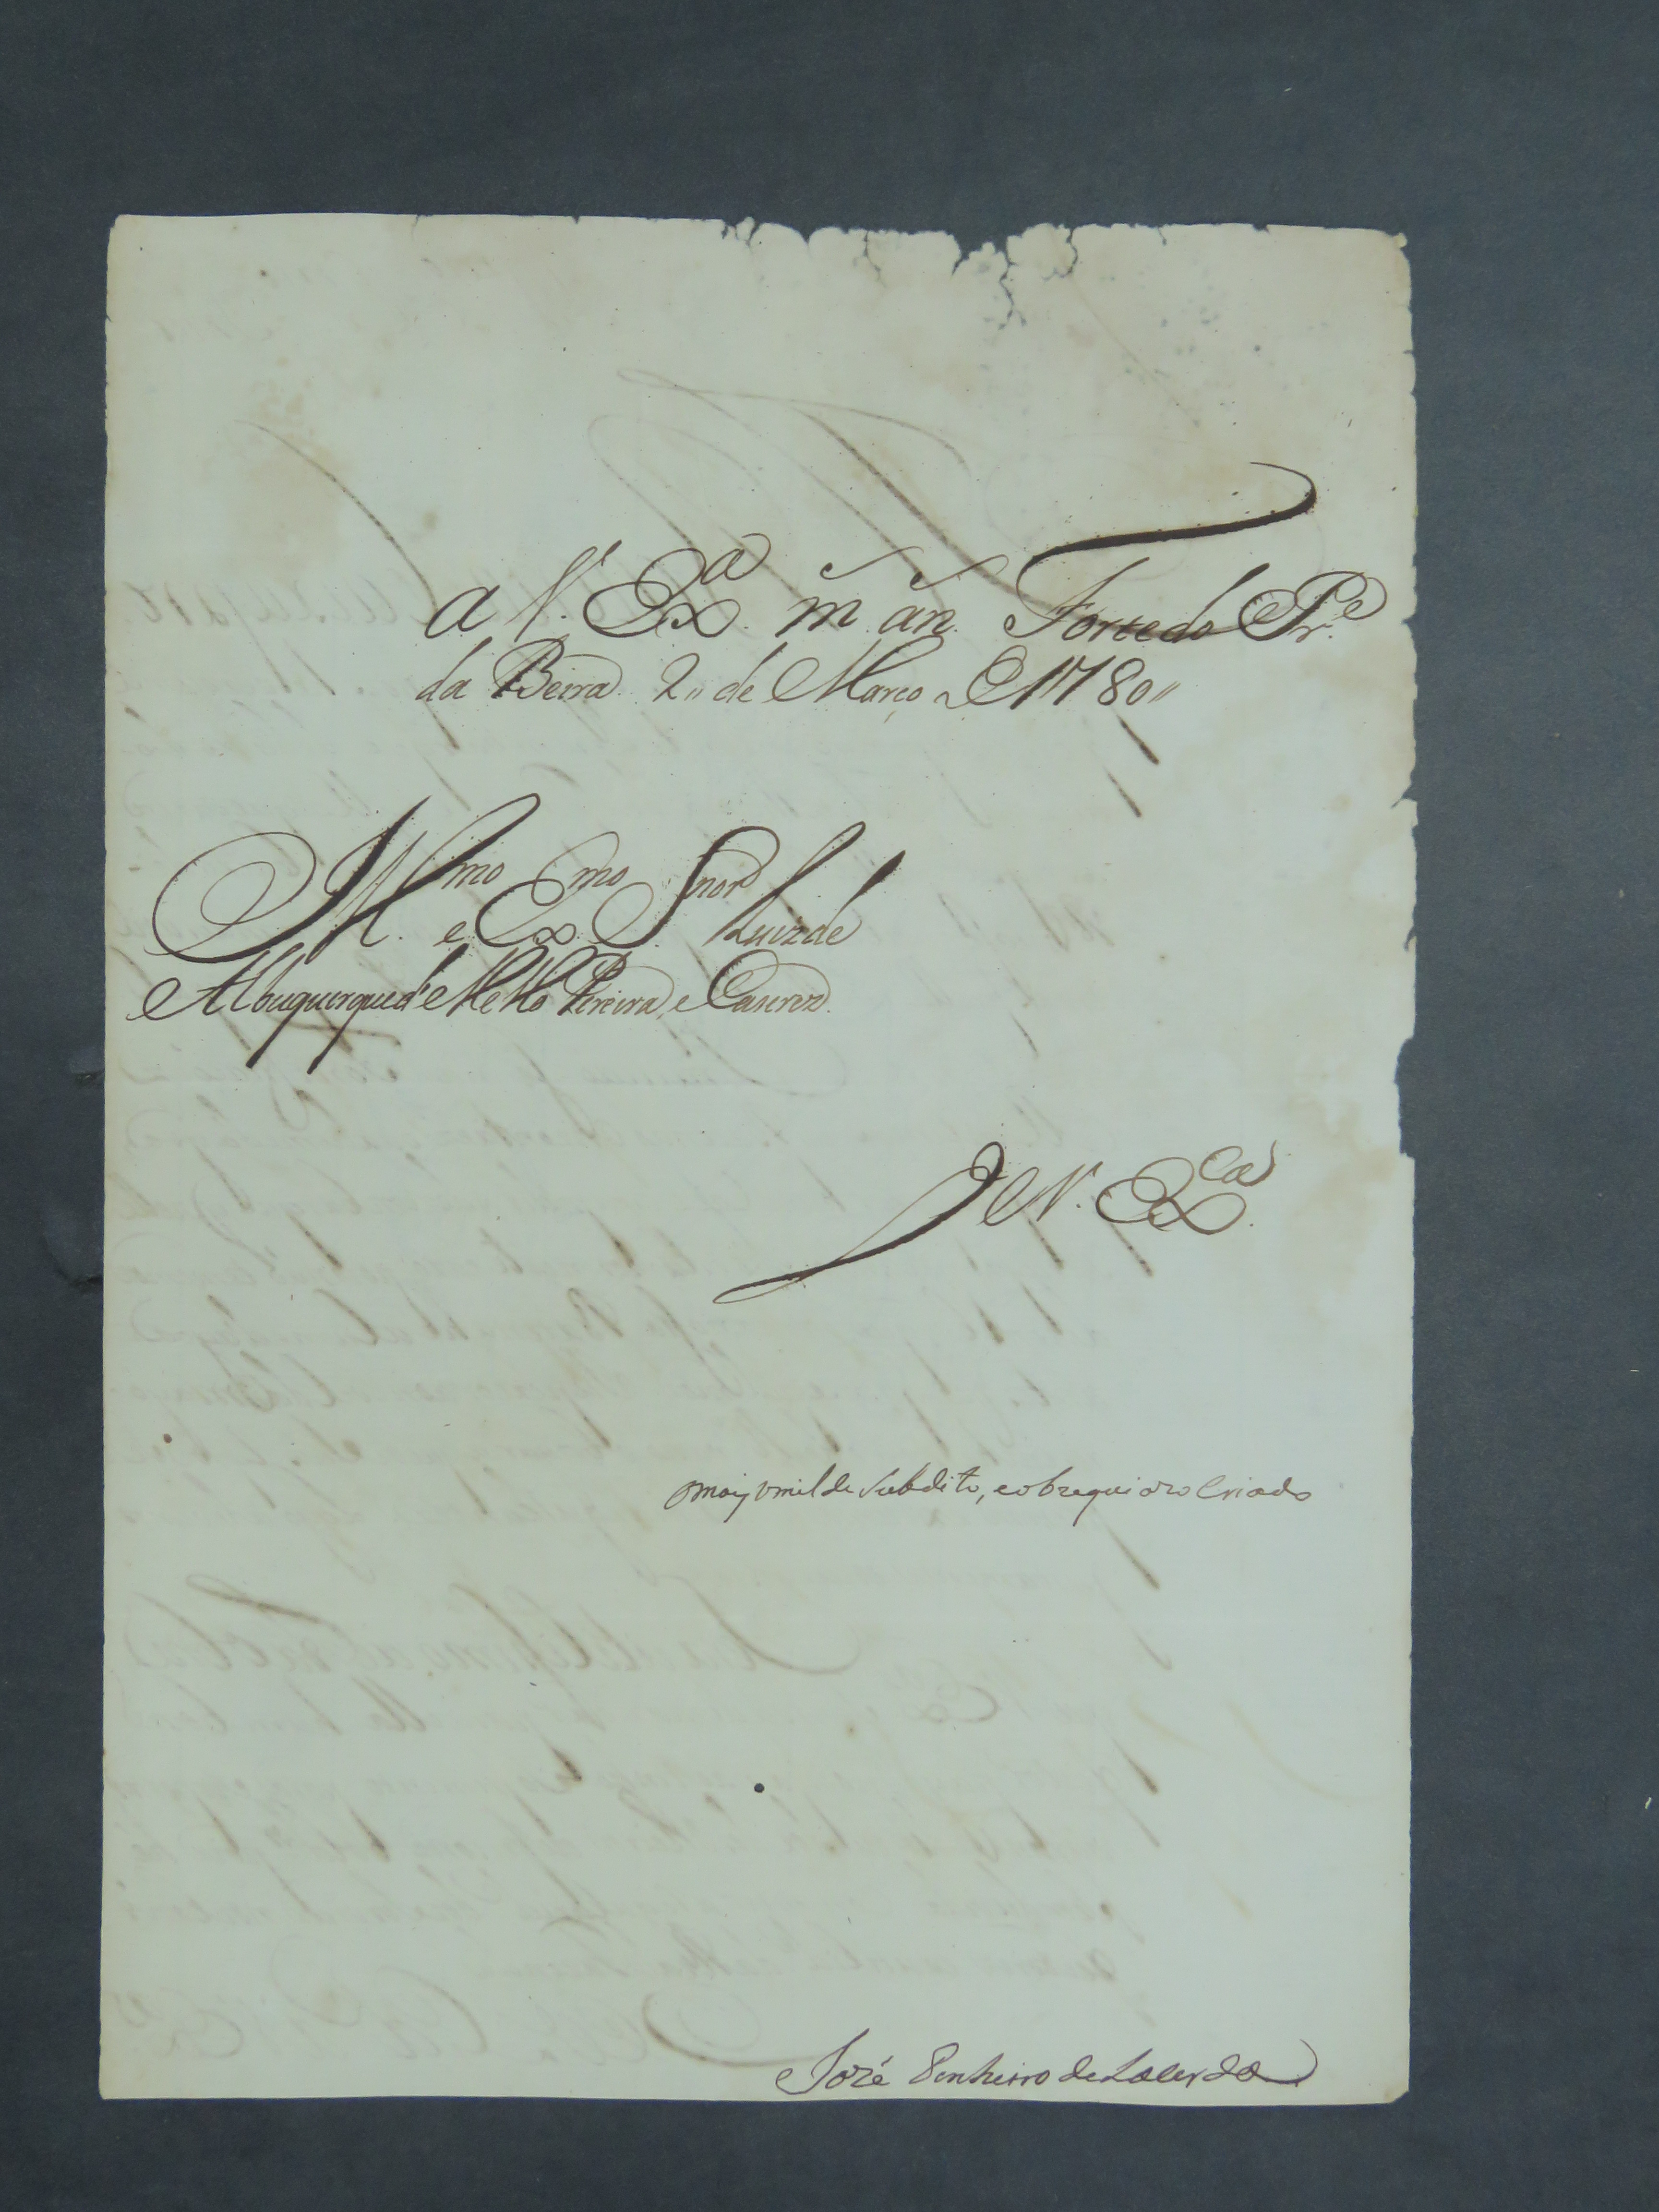 a V. Exª m. an. Forte do Pr.e
da Beira 2,, de Março de 1780,,
Ill.mo e Ex.mo Snor Luiz de
Albuquerque de Mello Pereira, e Caseres.
De V. Ex.cia
o maiz umilde Subdito, e obzequiozo Criado
Jozé Pinheiro de Lacerda